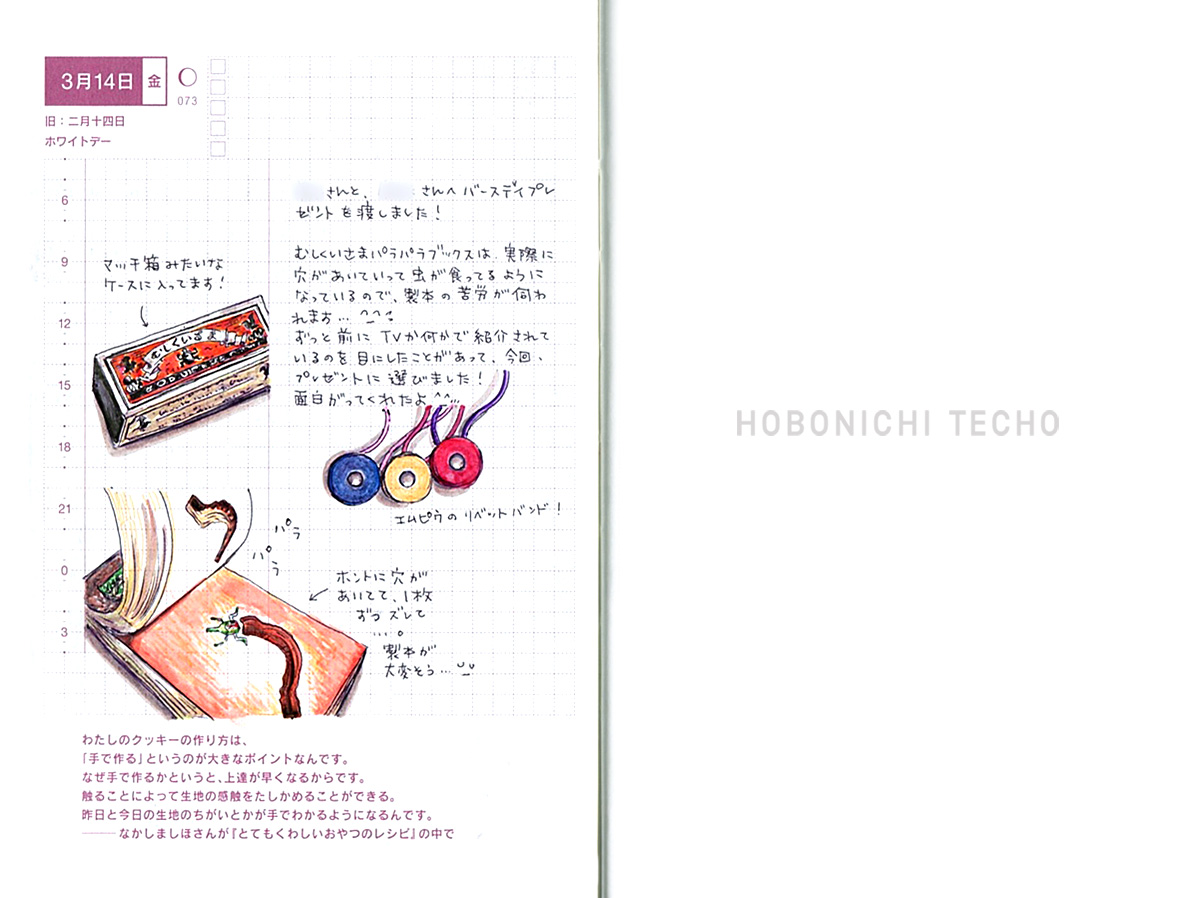 3月14日 金
073
旧：二月十四日
ホワイトデー
6
9
12
15
18
21
0
3
さんと、 さんへ バースデイプレ
ゼントを渡しました！
むしくいさまパラパラブックスは、実際に
穴があいていって虫が食ってるように
なっているので、製本の苦労が伺わ
れます…^_^;
ずっと前にTVか何かで紹介されて
いるのを目にしたことがあって、今回、
プレゼントに選びました！
面白がってくれたよ^^…
マッチ箱みたいな
ケースに入ってます！
むしくいさま
エムピウの リベットバンド！
パラ
パラ
ホントに穴が
あいてて、1枚
ずつズレて
…。
製本が
大変そう…
わたしのクッキーの作り方は、
「手で作る」というのが大きなポイントなんです。
なぜ手で作るかというと、上達が早くなるからです。
触ることによって生地の感触をたしかめることができる。
昨日と今日の生地のちがいとかが手でわかるようになるんです。
――なかしましほさんが『とてもくわしいおやつのレシピ』の中で
HOBONICHI TECHO